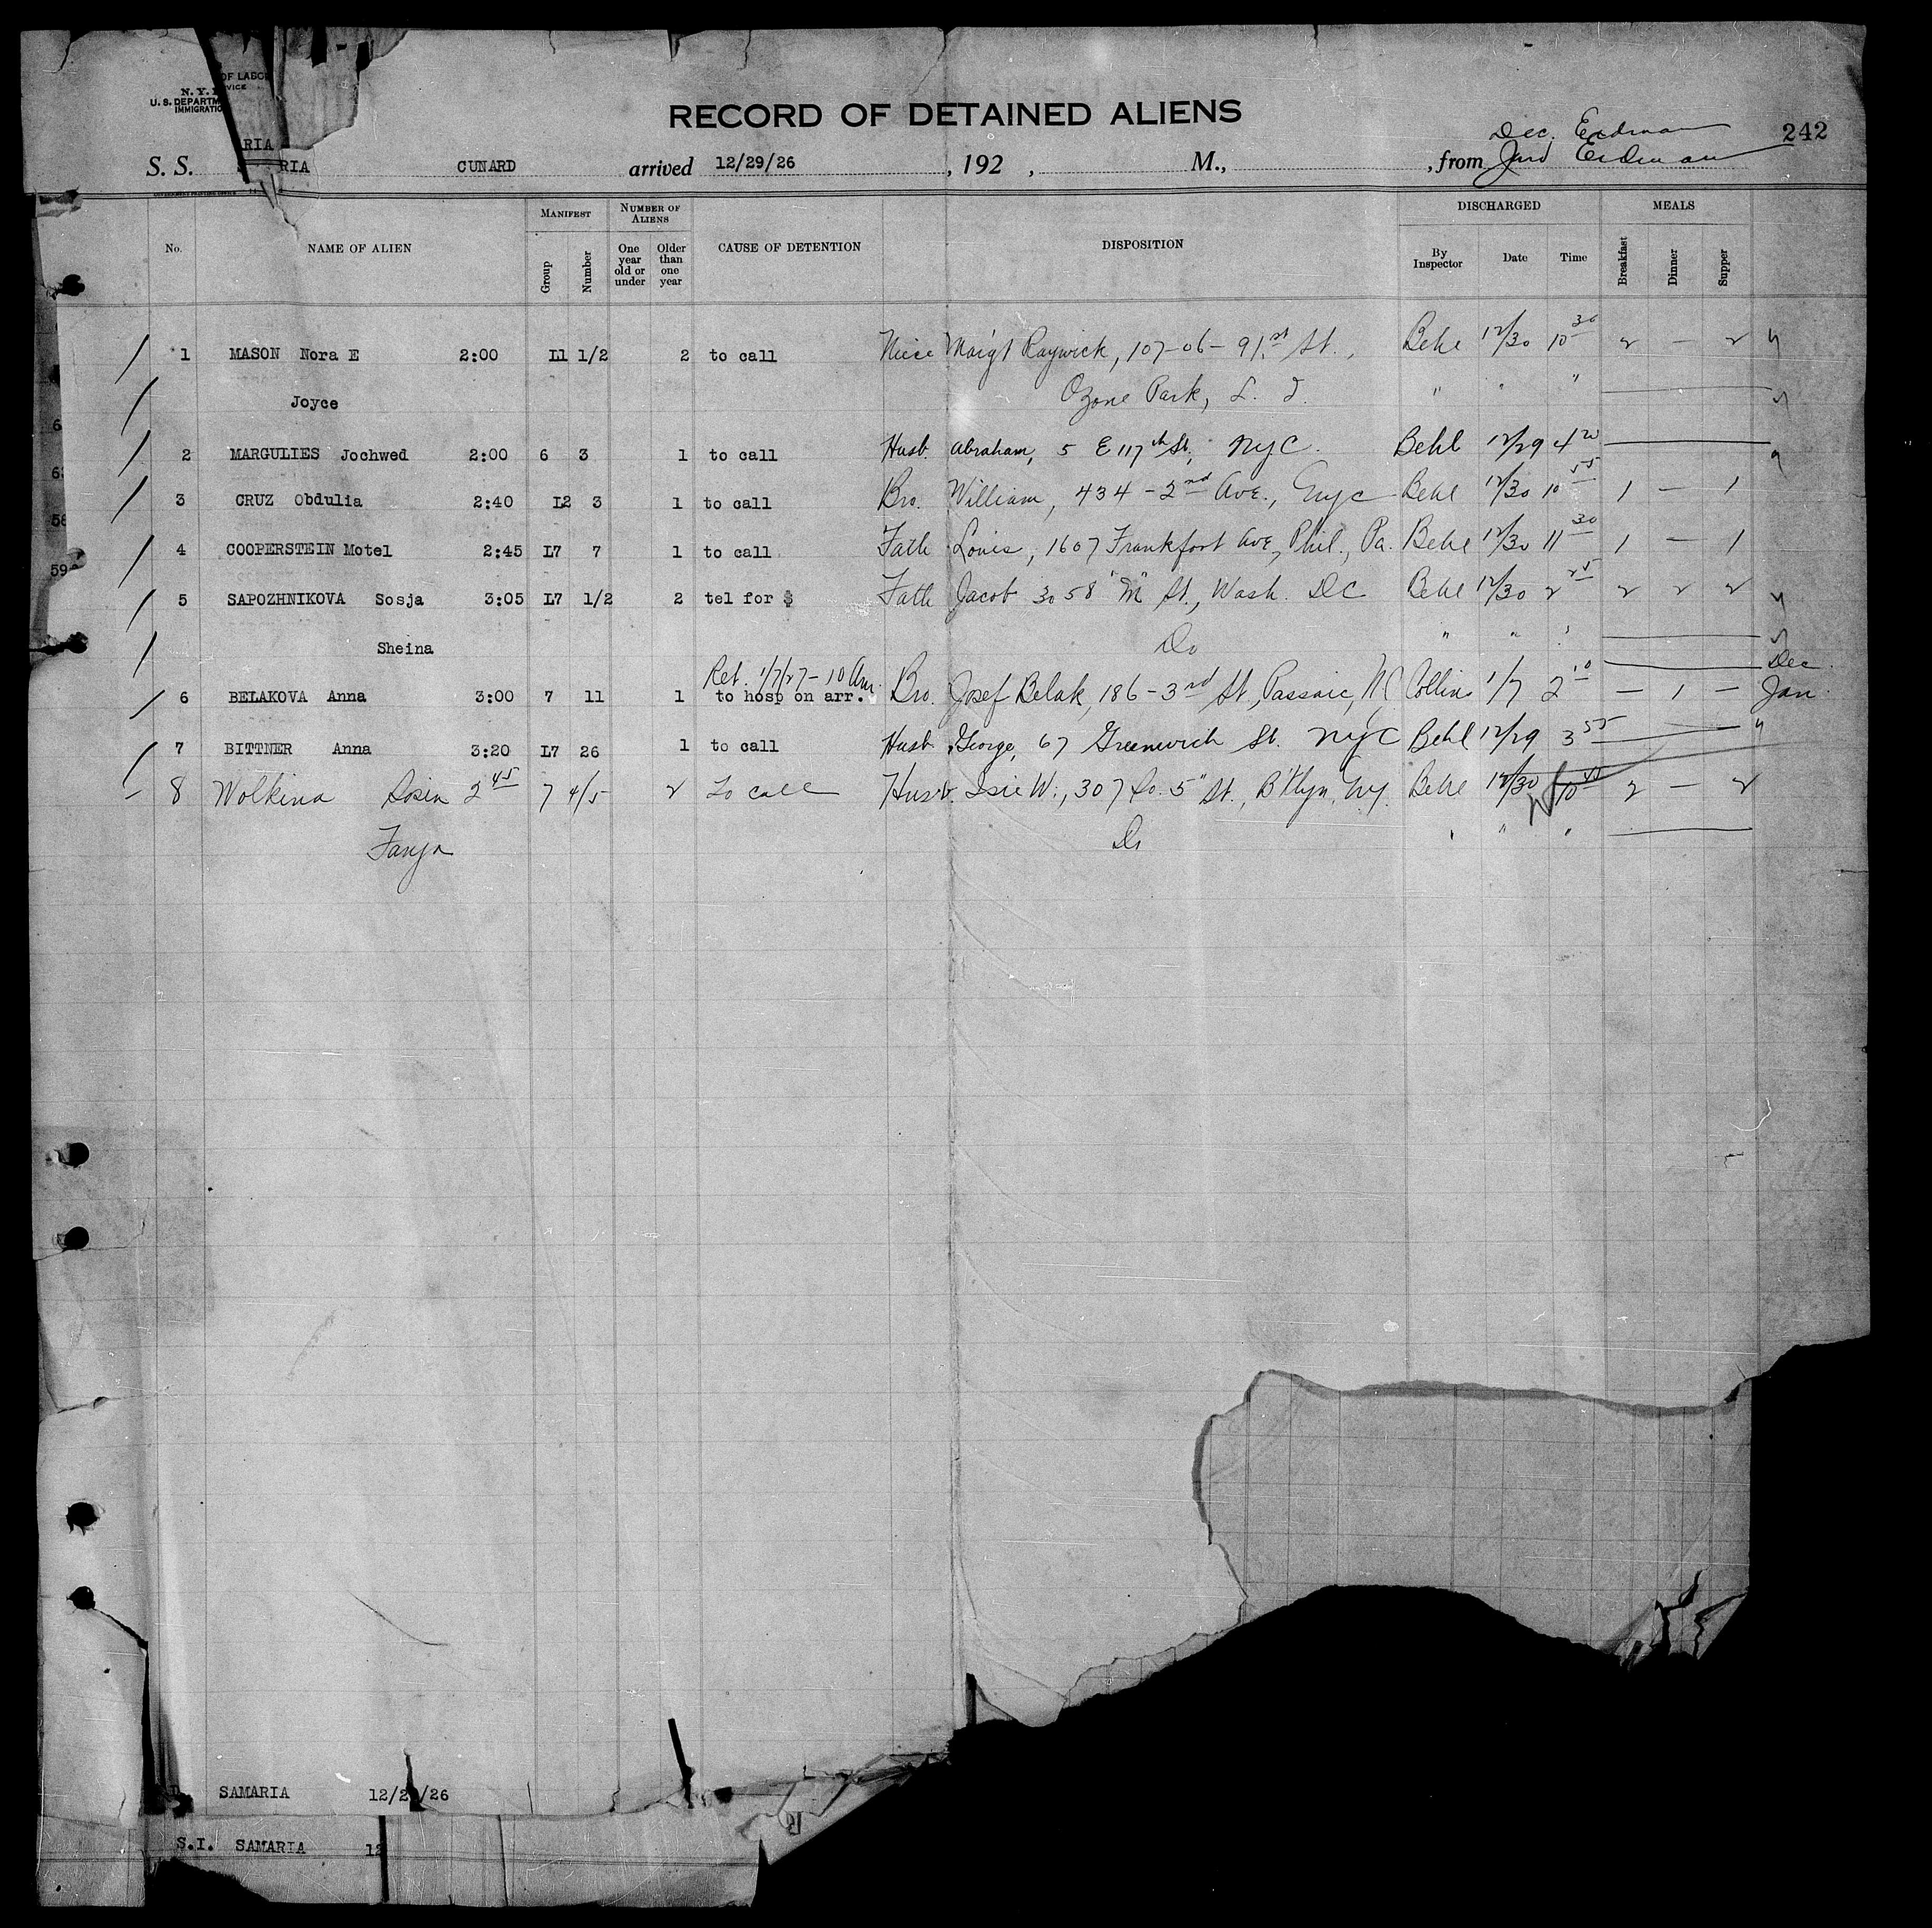 OF LABO
VICE
N. Y. I
U. S. DEPARTM
IMMIGRATIO
RECORD OF DETAINED ALIENS
Dec. Erdman
242
RIA
S. S. RIA CUNARD arrived 12/29/26 , 192 , M., , from Erdman
GOVERNMENT PRINTING OFFICE
No. NAME OF ALIEN MANIFEST Group Number NUMBER OF ALIENS One year old or under Older than one year CAUSE OF DETENTION DISPOSITION DISCHARGED By Inspector Date Time MEALS Breakfast Dinner Supper
1 MASON Nora E 2:00 L1 1/2 2 to call Niece Maigt Raywick, 107-06-91st St., Behl 12/30 10 30 2 — 2
Joyce Ozone Park, L. I. " " "
2 MARGULIES Jochwed 2:00 6 3 1 to call Husb. Abraham, 5 E 117th St., NYC. Behl 12/29 4 20
3 CRUZ Obdulia 2:40 L2 3 1 to call Bro. William, 434-2nd Ave., NYC Behl 12/30 10 55 1 — 1
4 COOPERSTEIN Motel 2:45 L7 7 1 to call Fath Louis, 1607 Frankfort Ave, Phil., Pa. Behl 12/30 11 30 1 — 1
5 SAPOZHNIKOVA Sosja 3:05 L7 1/2 2 tel for $ Fath Jacob 3058 "M" St., Wash. DC Behl 12/30 2 25 2 2 2
Sheina Do " " " Dec.
Ret. 1/7/27-10 Am.
6 BELAKOVA Anna 3:00 7 11 1 to hosp on arr. Bro. Josef Belak, 186-3rd St., Passaic, NJ Collins 1/7 2 10 — 1 — Jan.
7 BITTNER Anna 3:20 L7 26 1 to call Husb. George, 67 Greenwich St. NYC Behl 12/29 3 55
8 Wolkina Rosia 2 45 7 4/5 2 to call Husb. Isie W., 307 So. 5" St., B'klyn, Ny. Behl 12/30 10 2 — 2
Fanja Do " " "
SAMARIA 12/2 /26
S.I. SAMARIA 12